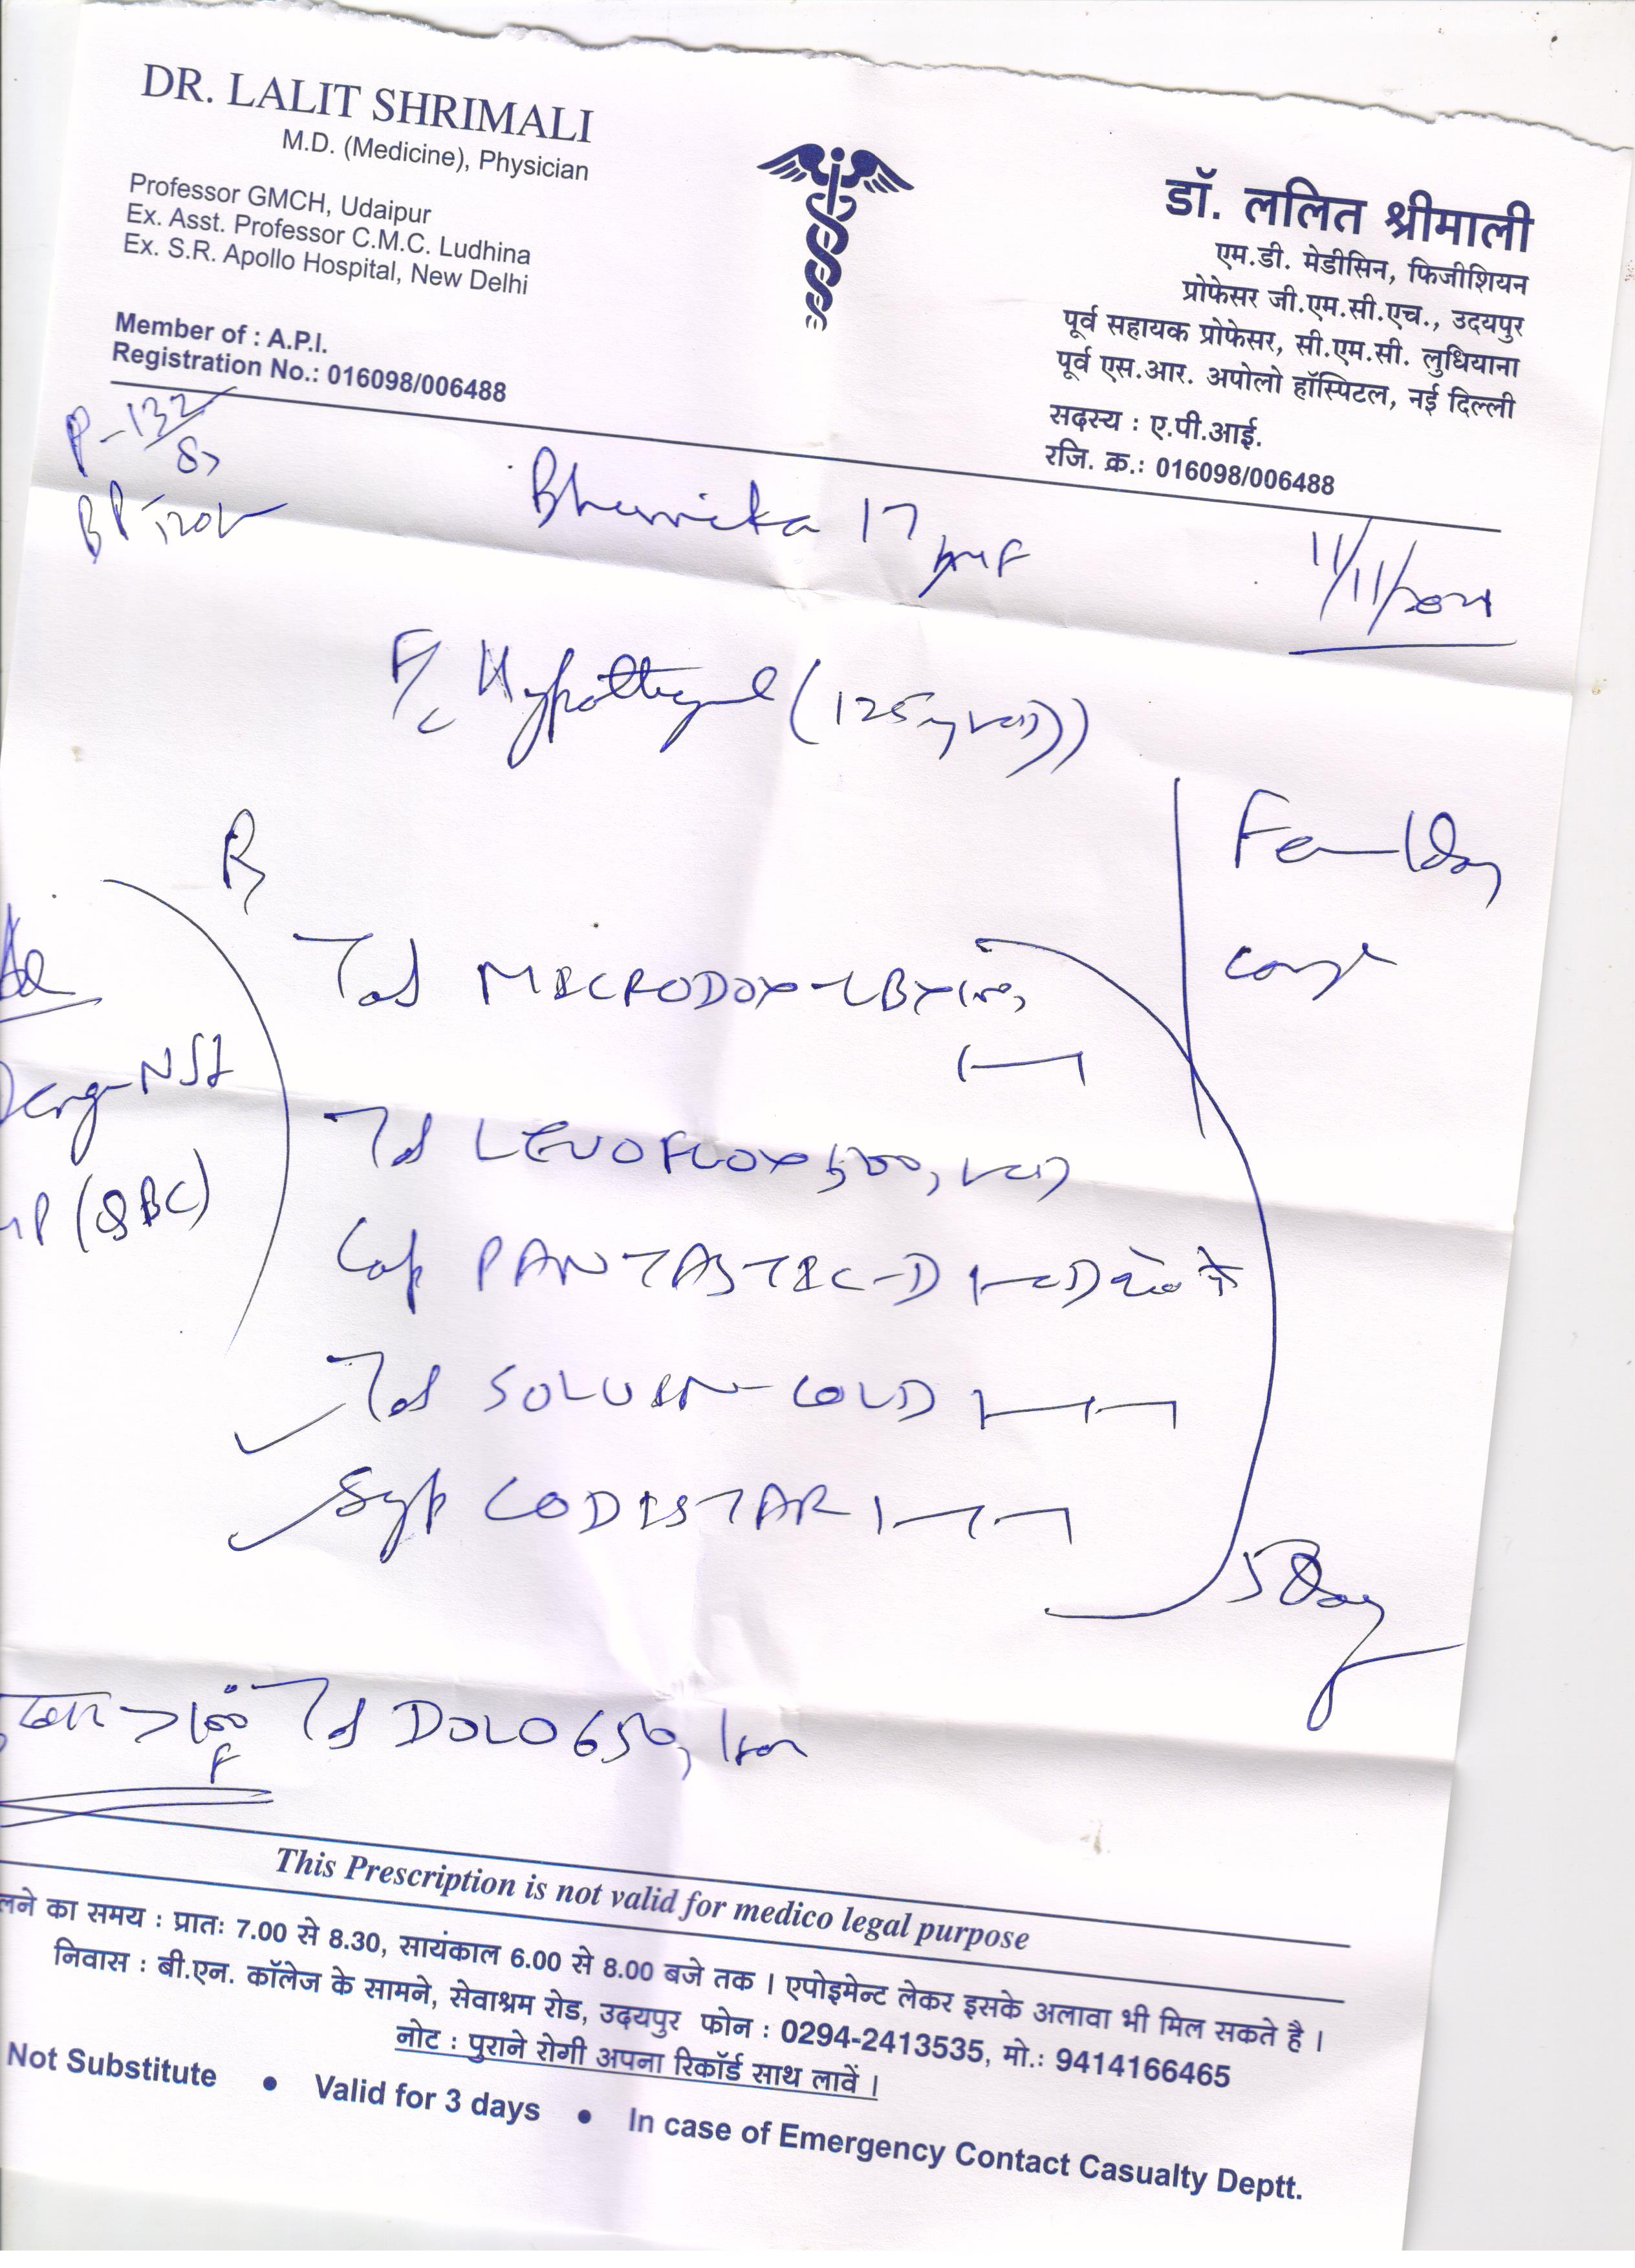 DR. LALIT SHRIMALI
M.D. (Medicine), Physician
Professor GMCH, Udaipur
Ex. Asst. Professor C.M.C. Ludhina
Ex. S.R. Apollo Hospital, New Delhi
Member of : A.P.I.
Registration No.: 016098/006488
डॉ. ललित श्रीमाली
एम.डी. मेडीसिन, फिजीशियन
प्रोफेसर जी.एम.सी.एच., उदयपुर
पूर्व सहायक प्रोफेसर, सी.एम.सी. लुधियाना
पूर्व एस.आर. अपोलो हॉस्पिटल, नई दिल्ली
सदस्य : ए.पी.आई.
रजि. क्र.: 016098/006488
P-132
BP
Bhumika 17
11/11/2021
(125
Fe
MICRODOX-LBX
NS1
LEVOFLOX 500
MP (QBC)
Cap PANTASTIC-D
SOLVIN-COLD
Syp CODISTAR
5 Day
>100 F DOLO 650
This Prescription is not valid for medico legal purpose
का समय : प्रातः 7.00 से 8.30, सायंकाल 6.00 से 8.00 बजे तक । एपोइमेन्ट लेकर इसके अलावा भी मिल सकते है ।
निवास : बी.एन. कॉलेज के सामने, सेवाश्रम रोड, उदयपुर फोन : 0294-2413535, मो.: 9414166465
नोट : पुराने रोगी अपना रिकॉर्ड साथ लावें ।
Not Substitute • Valid for 3 days • In case of Emergency Contact Casualty Deptt.